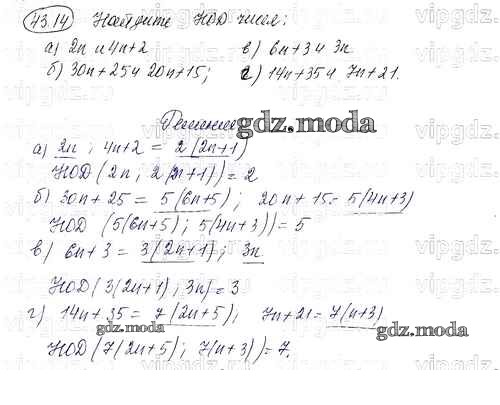 43.14 Найдите НОД чисел:
а) 2n и 4n+2 в) 6n+3 и 3n
б) 30n+25 и 20n+15; г) 14n+35 и 7n+21.
Решение
gdz.moda
а) 2n; 4n+2 = 2(2n+1)
НОД (2n; 2(2n+1)) = 2
б) 30n+25 = 5(6n+5); 20n+15 = 5(4n+3)
НОД (5(6n+5); 5(4n+3)) = 5
в) 6n+3 = 3(2n+1); 3n
НОД (3(2n+1); 3n) = 3
г) 14n+35 = 7(2n+5); 7n+21 = 7(n+3)
gdz.moda gdz.moda
НОД (7(2n+5); 7(n+3)) = 7.